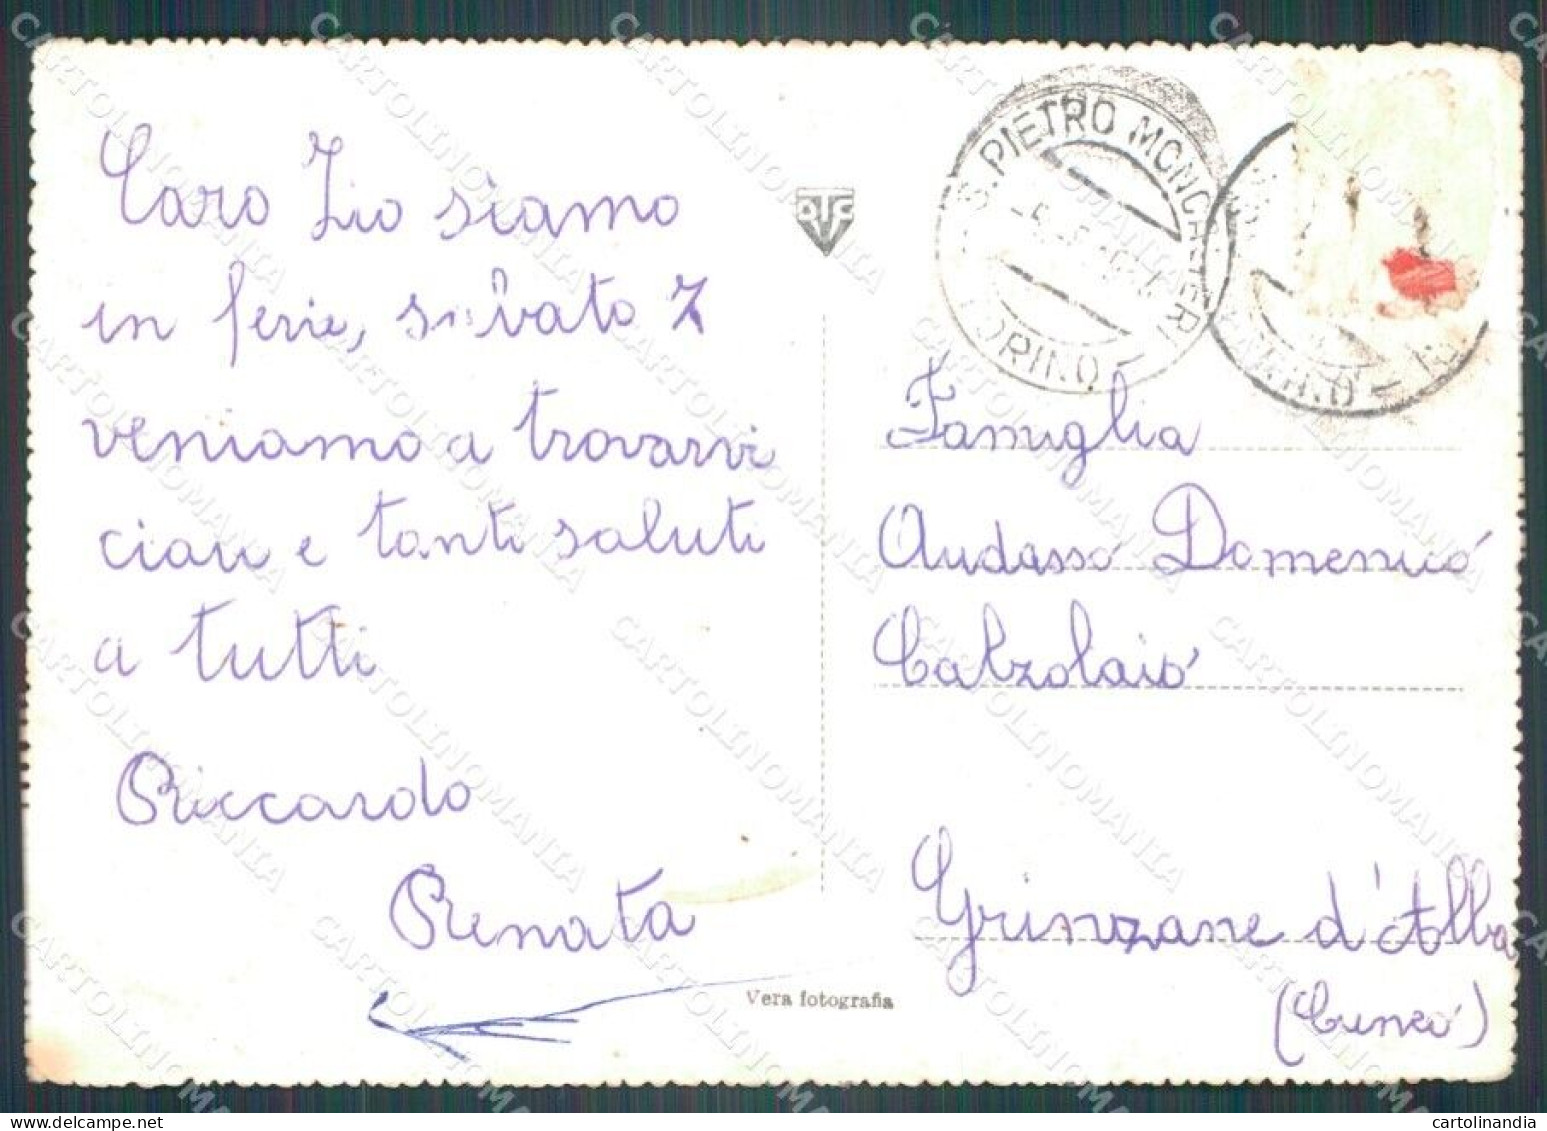 Caro Zio siamo
in ferie, sabato 7
veniamo a trovarvi
ciau e tanti saluti
a tutti
Riccardo
Renata
OTFC
S. PIETRO MONCALIERI
TORINO
Famiglia
Audasso Domenico
Calzolaio
Grinzane d'Alba
(Cuneo)
Vera fotografia
CARTOLINOMANIA
cartolinandia